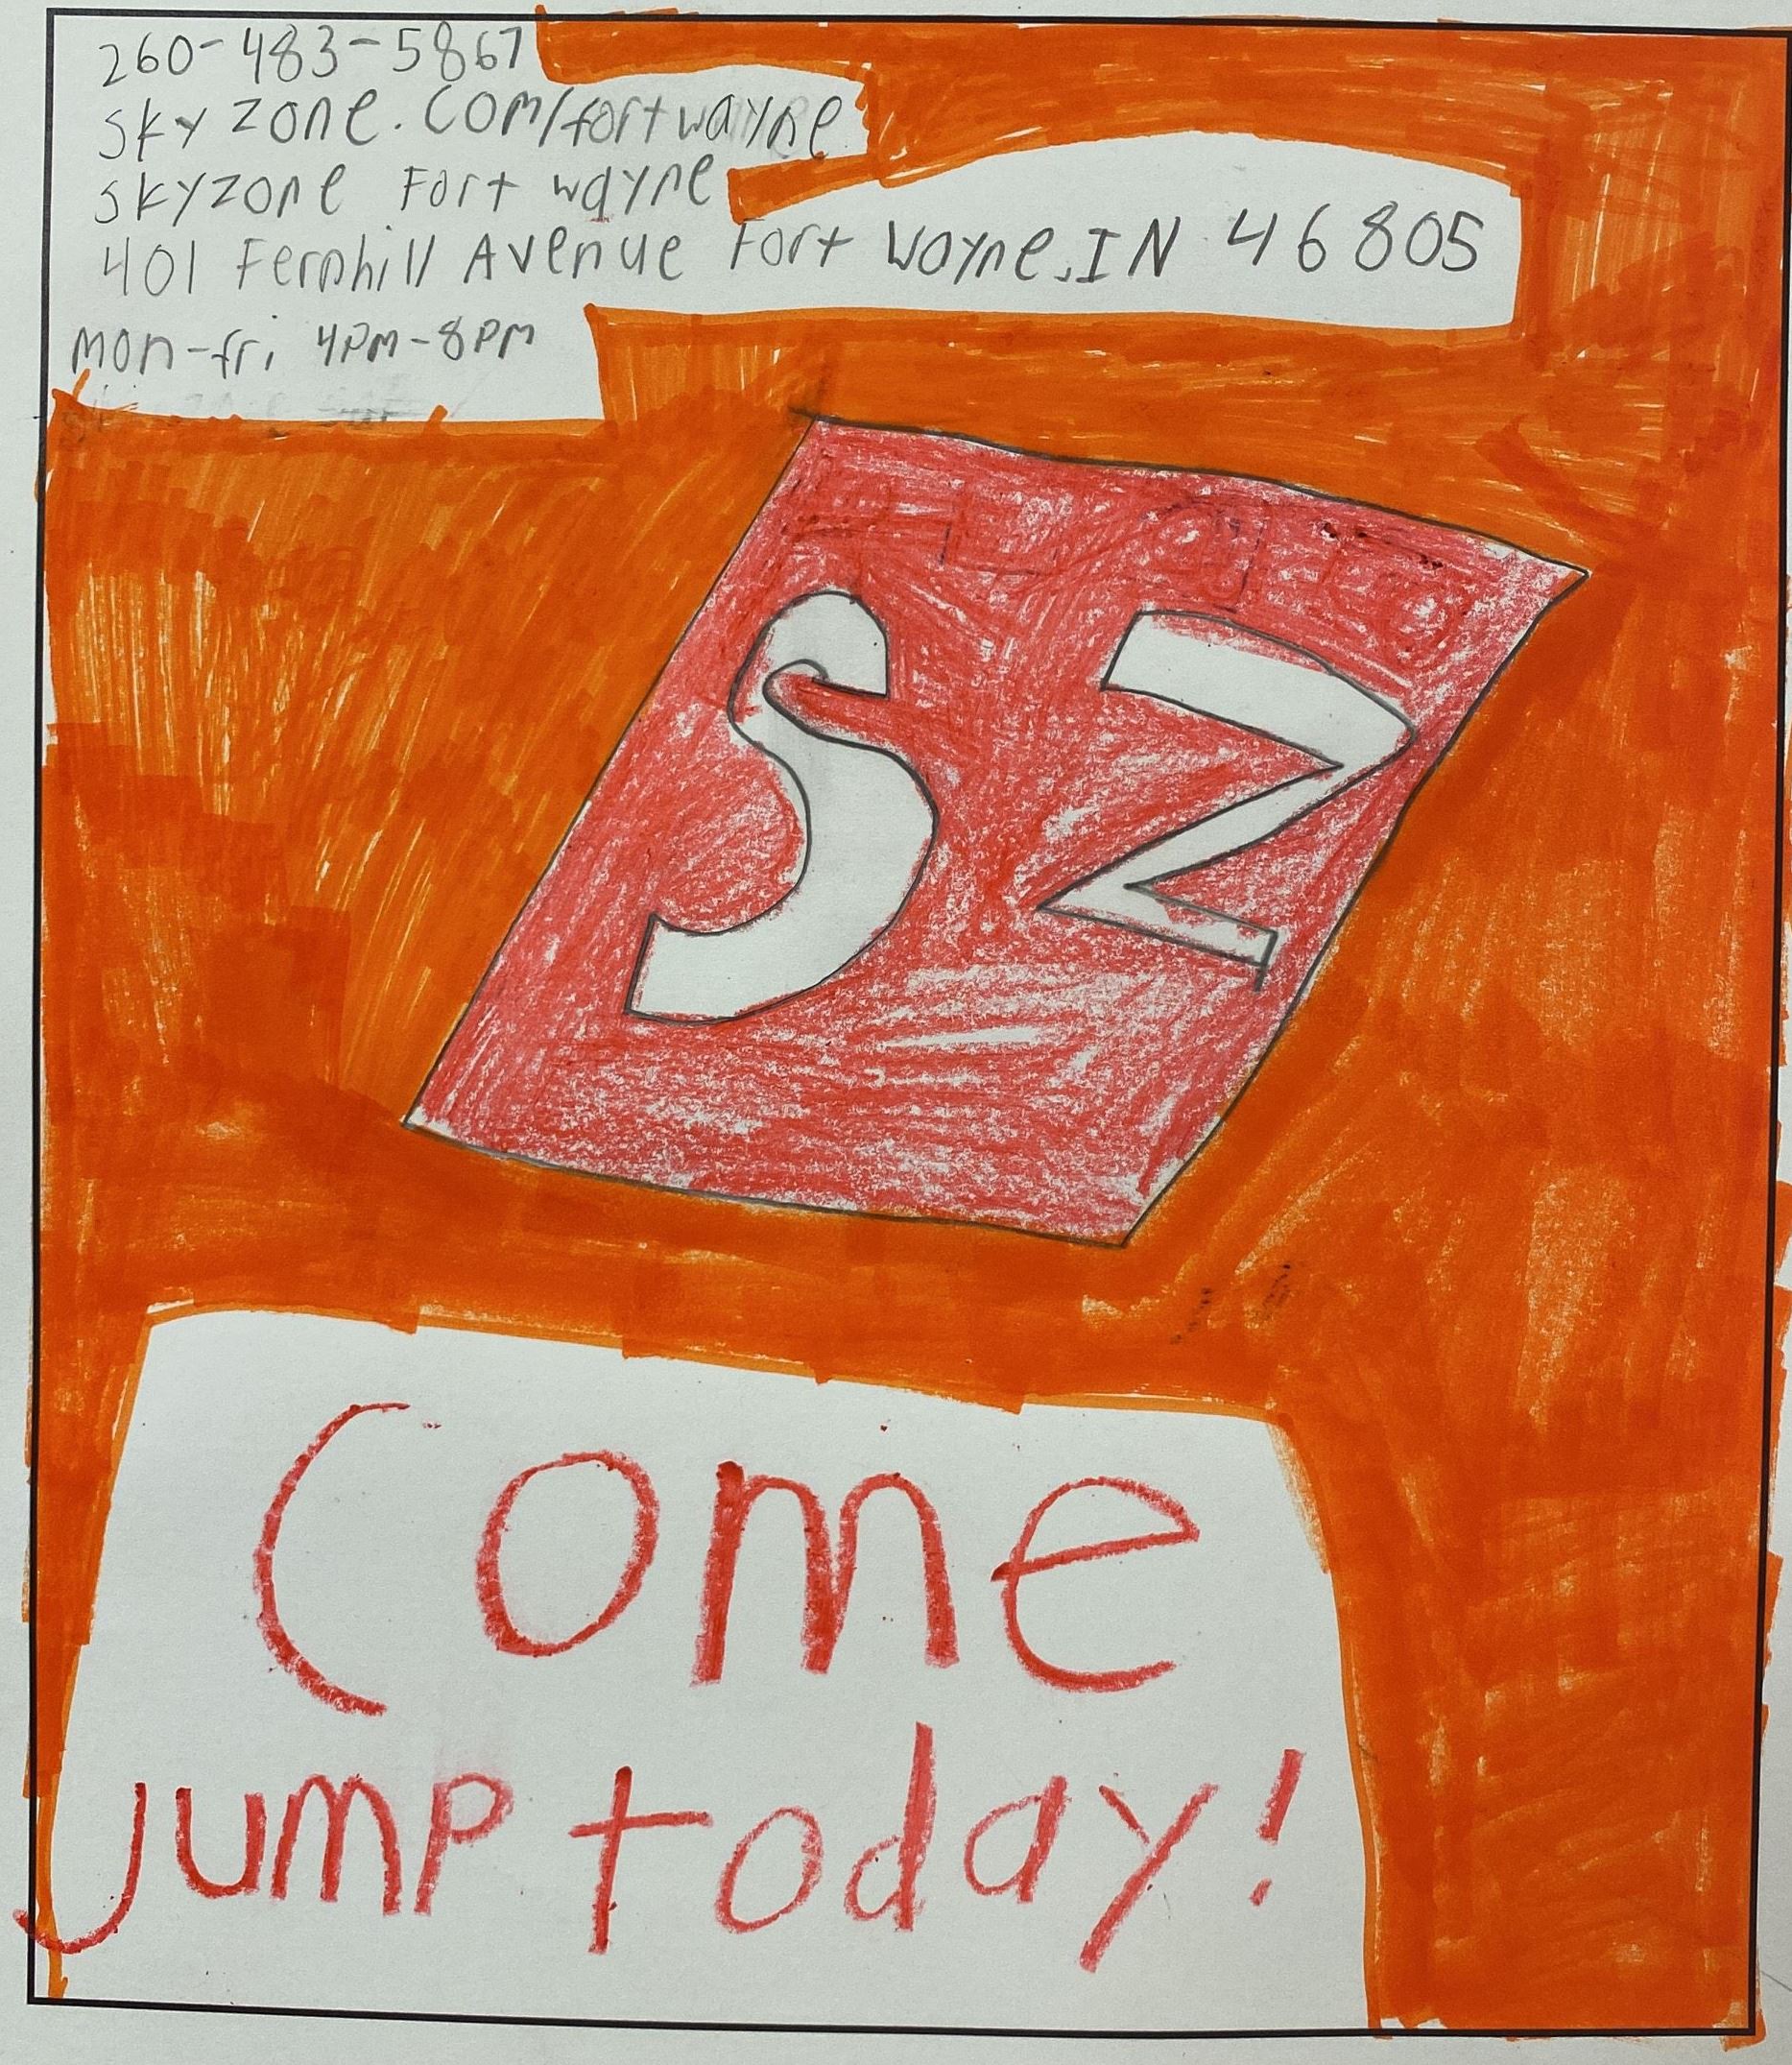 260-483-5867
skyzone.com/fortwayne
skyzone Fort wayne
401 Fernhill Avenue Fort Wayne, IN 46805
mon-fri 4PM-8PM
SZ
Come
jump today!